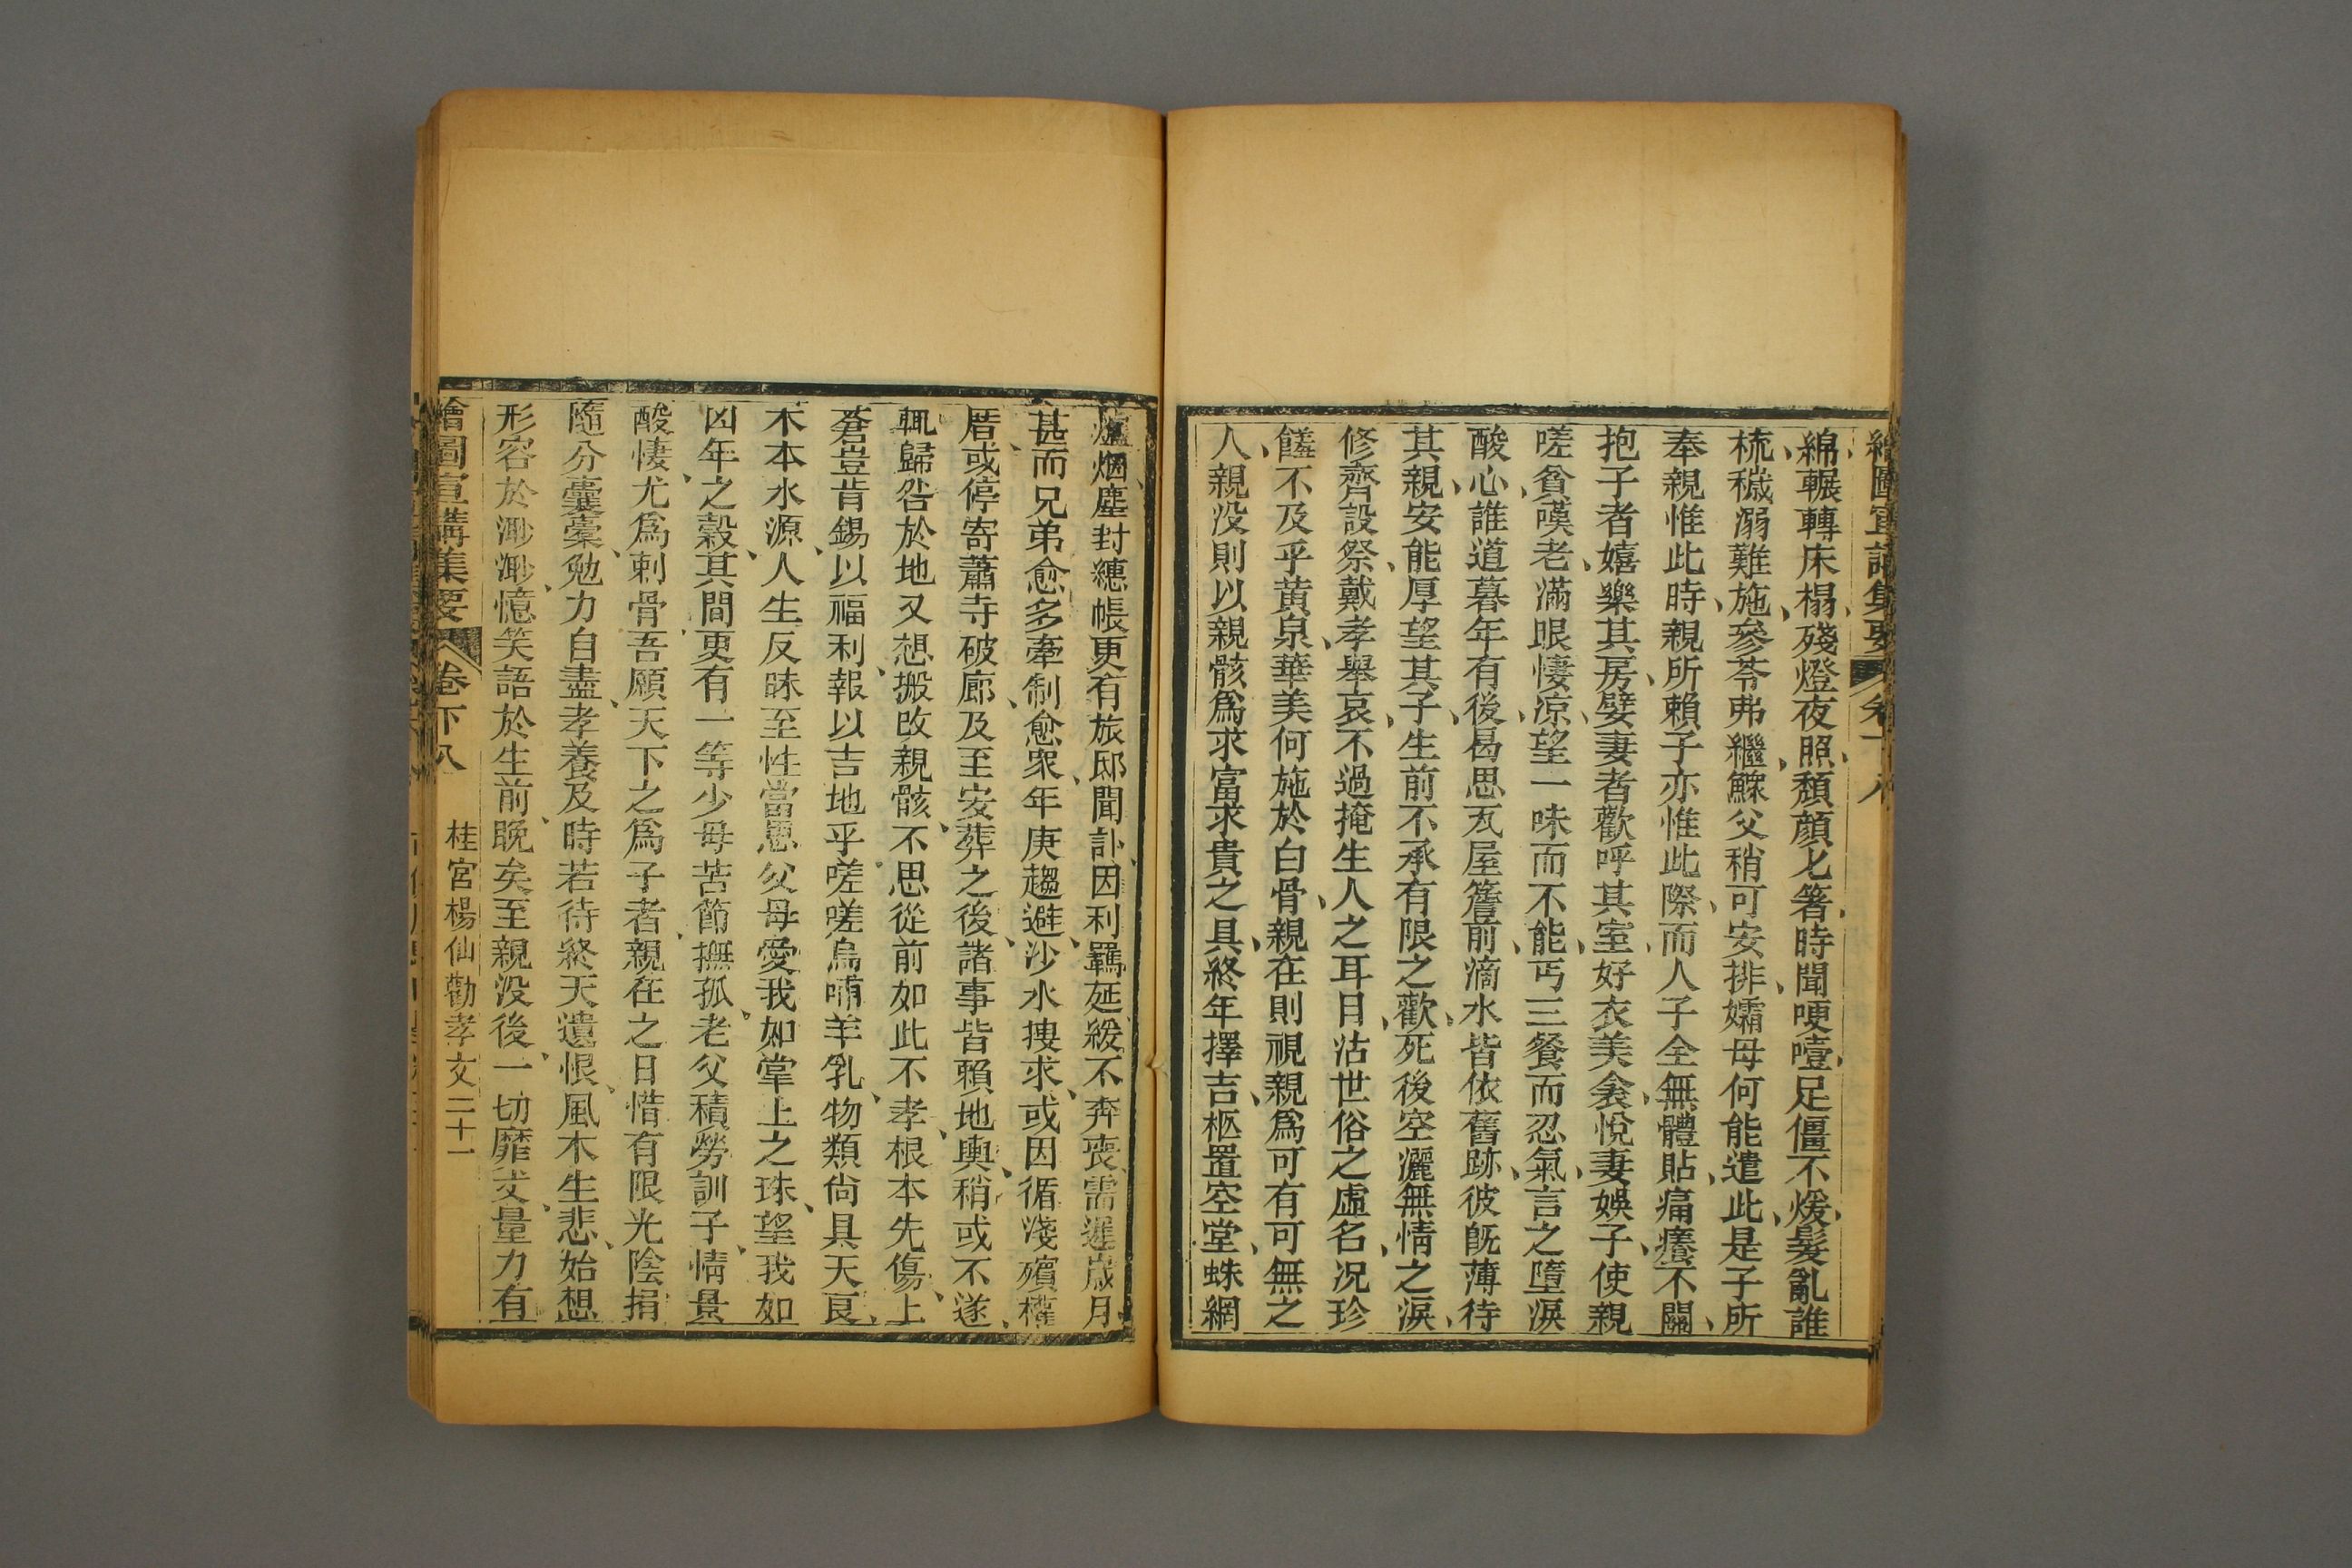 繪圖宣講集要
綿、輾轉床榻、殘燈夜照、頹顔匕箸、時聞哽噎、足僵不煖、髮亂誰
梳、穢溺難施、參苓弗繼、鰥父稍可安排、孀母何能遣此、是子所
奉親惟此時、親所賴子亦惟此際、而人子全無體貼、痛癢不關、
抱子者嬉樂其房、嬖妻者歡呼其室、好衣美食、悅妻娛子、使親
嗟貧嘆老、滿眼悽凉、望一味而不能、丐三餐而忍氣、言之墮淚
酸心、誰道暮年有後、曷思瓦屋簷前、滴水皆依舊跡、彼旣薄待
其親、安能厚望其子、生前不承有限之歡、死後空灑無情之淚、
修齊設祭、戴孝舉哀、不過掩生人之耳目、沽世俗之虛名、况珍
饈不及乎黄泉、華美何施於白骨、親在則視親爲可有可無之
人、親没則以親骸爲求富求貴之具、終年擇吉、柩置空堂、蛛網
爐烟、塵封繐帳、更有旅邸聞訃、因利羈延、緩不奔喪、需遲歲月、
甚而兄弟愈多、牽制愈衆、年庚趨避、沙水搜求、或因循淺殯權
厝、或停寄蕭寺破廊、及至安葬之後、諸事皆賴地輿、稍或不遂、
輒歸咎於地、又想搬改親骸、不思從前如此不孝、根本先傷、上
蒼豈肯錫以福利、報以吉地乎、嗟嗟烏哺羊乳、物類尚具天良、
木本水源、人生反昧至性、當思父母愛我如掌上之珠、望我如
凶年之穀、其間更有一等少母苦節撫孤、老父積勞訓子、情景
酸悽、尤爲刺骨、吾願天下之爲子者、親在之日、惜有限光陰、捐
隨分囊橐、勉力自盡、孝養及時、若待終天遺恨、風木生悲、始想
形容於渺渺、憶笑語於生前、晚矣、至親没後、一切靡文、量力有
繪圖宣講集要 卷下八 桂宮楊仙勸孝文 二十一